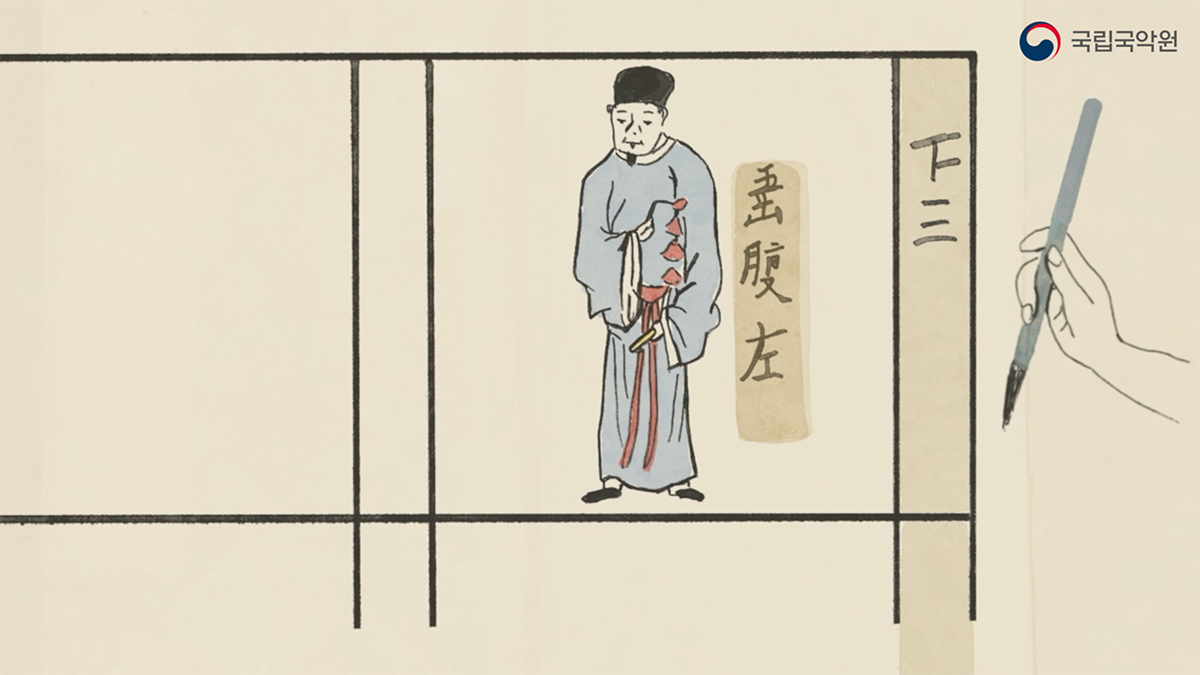 국립국악원
下三
垂腹左